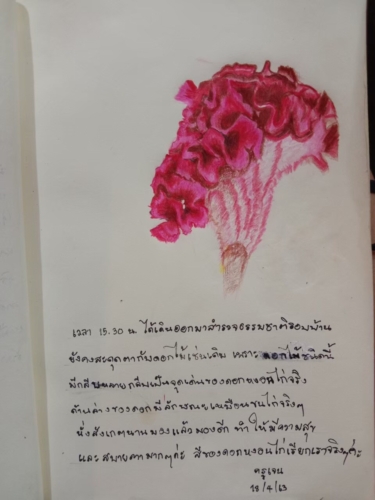 เวลา 15.30 น. ได้เดินออกมาสำรวจธรรมชาติรอบบ้าน
ยังคงสะดุดตากับดอกไม้เช่นเดิม เพราะ ดอกไม้ชนิดนี้
มีกลีบหลายกลีบเป็นจุดเด่นของดอกหงอนไก่จริง
ด้านล่างของดอกมีลักษณะเหมือนขนไก่จริงๆ
นั่งสังเกตนานพอแล้วมองดีๆ ทำให้มีความสุข
และสบายตามากๆค่ะ สีของดอกหงอนไก่เรียกเราจริงๆค่ะ
ครูเจน
18/4/63